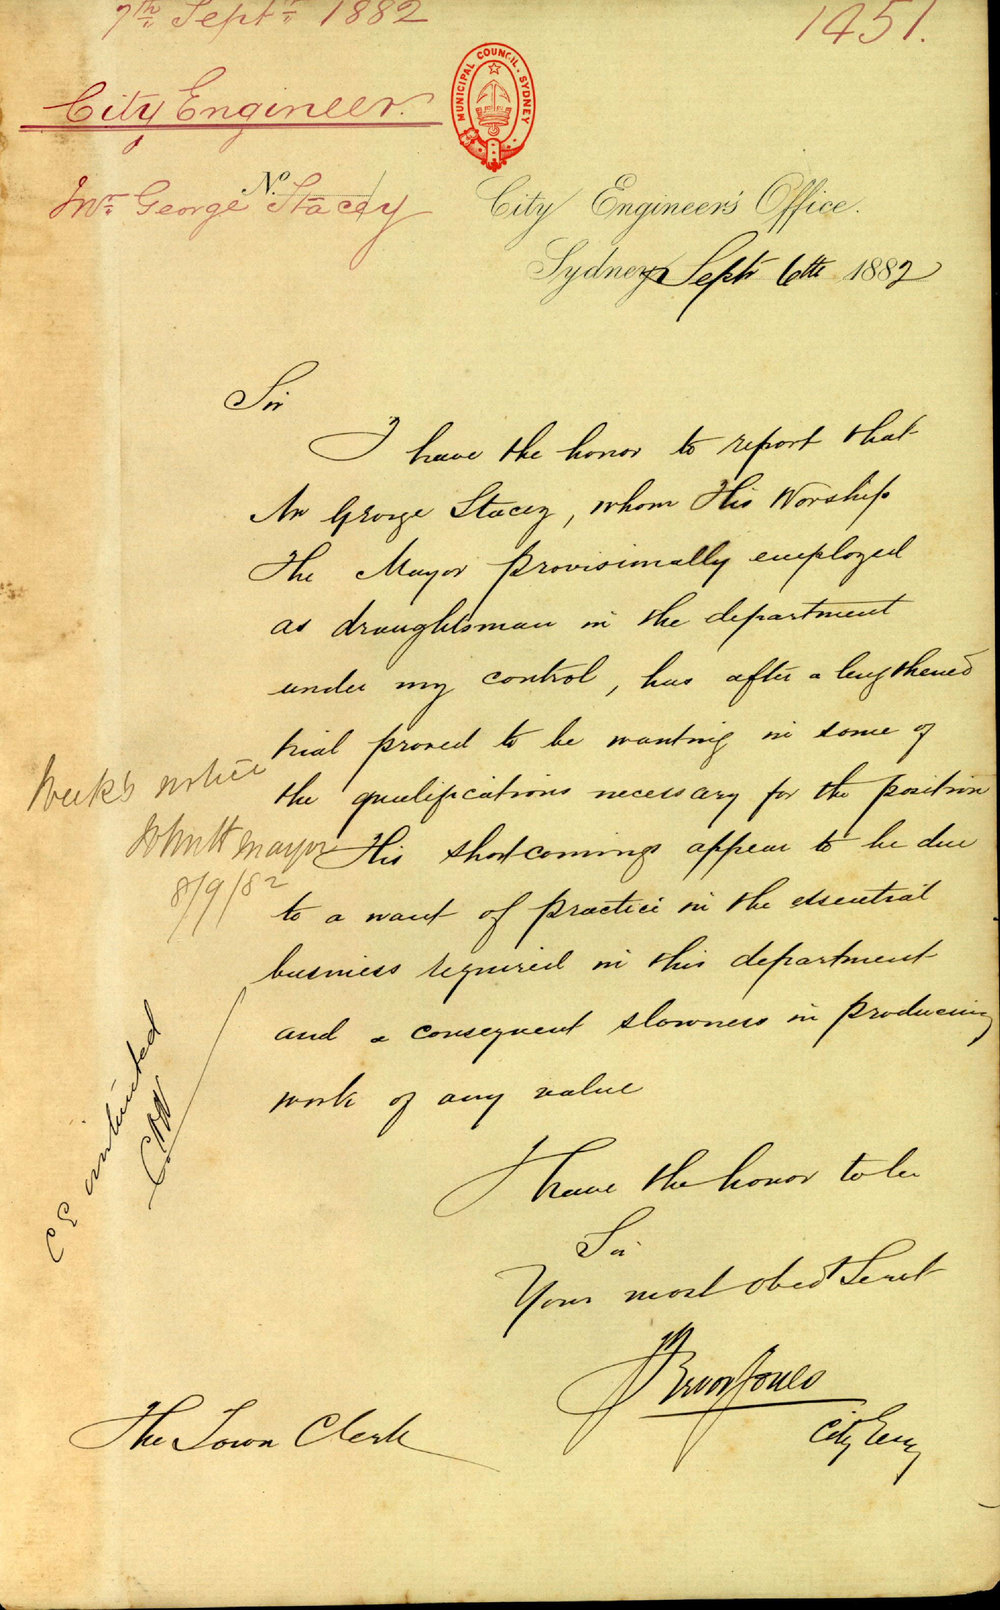 7th Septr 1882
1451.
City Engineer.
MUNICIPAL COUNCIL. SYDNEY
Mr. George Stacey
No.
City Engineer's Office.
Sydney, Septr 6th 1882
Sir
I have the honor to report that
Mr George Stacey, whom His Worship
the Mayor provisionally employed
as draughtsman in the department
under my control, has after a lengthened
trial proved to be wanting in some of
the qualifications necessary for the position
His shortcomings appear to be due
to a want of practice in the essential
business required in this department
and a consequent slowness in producing
work of any value
Week's notice
Mayor
8/9/82
CE
I have the honor to be
Sir
Your most obedt Servt
Trevor Jones
City Engr
The Town Clerk